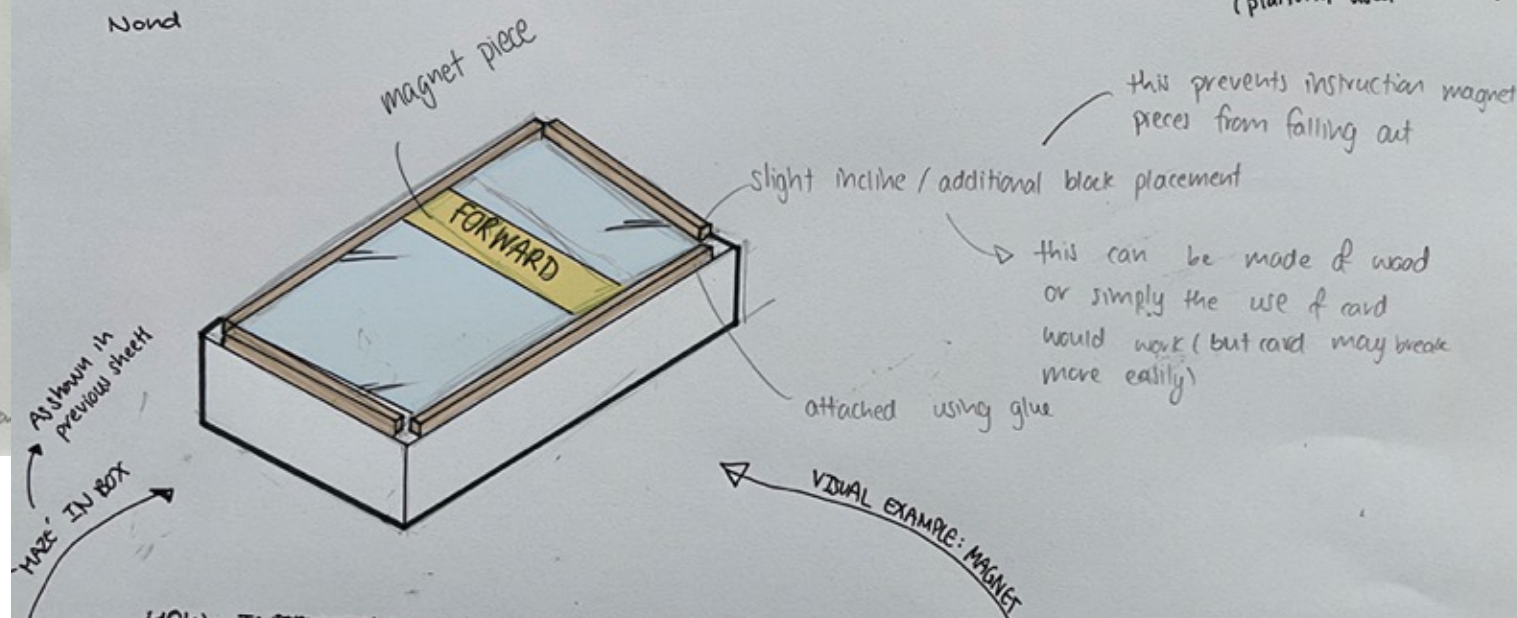 Nond
magnet piece
this prevents instruction magnet
pieces from falling out
slight incline / additional block placement
FORWARD
this can be made of wood
or simply the use of card
would work (but card may break
more easily)
attached using glue
As shown in
previous sheet
'MAZE' IN BOX
VISUAL EXAMPLE: MAGNET